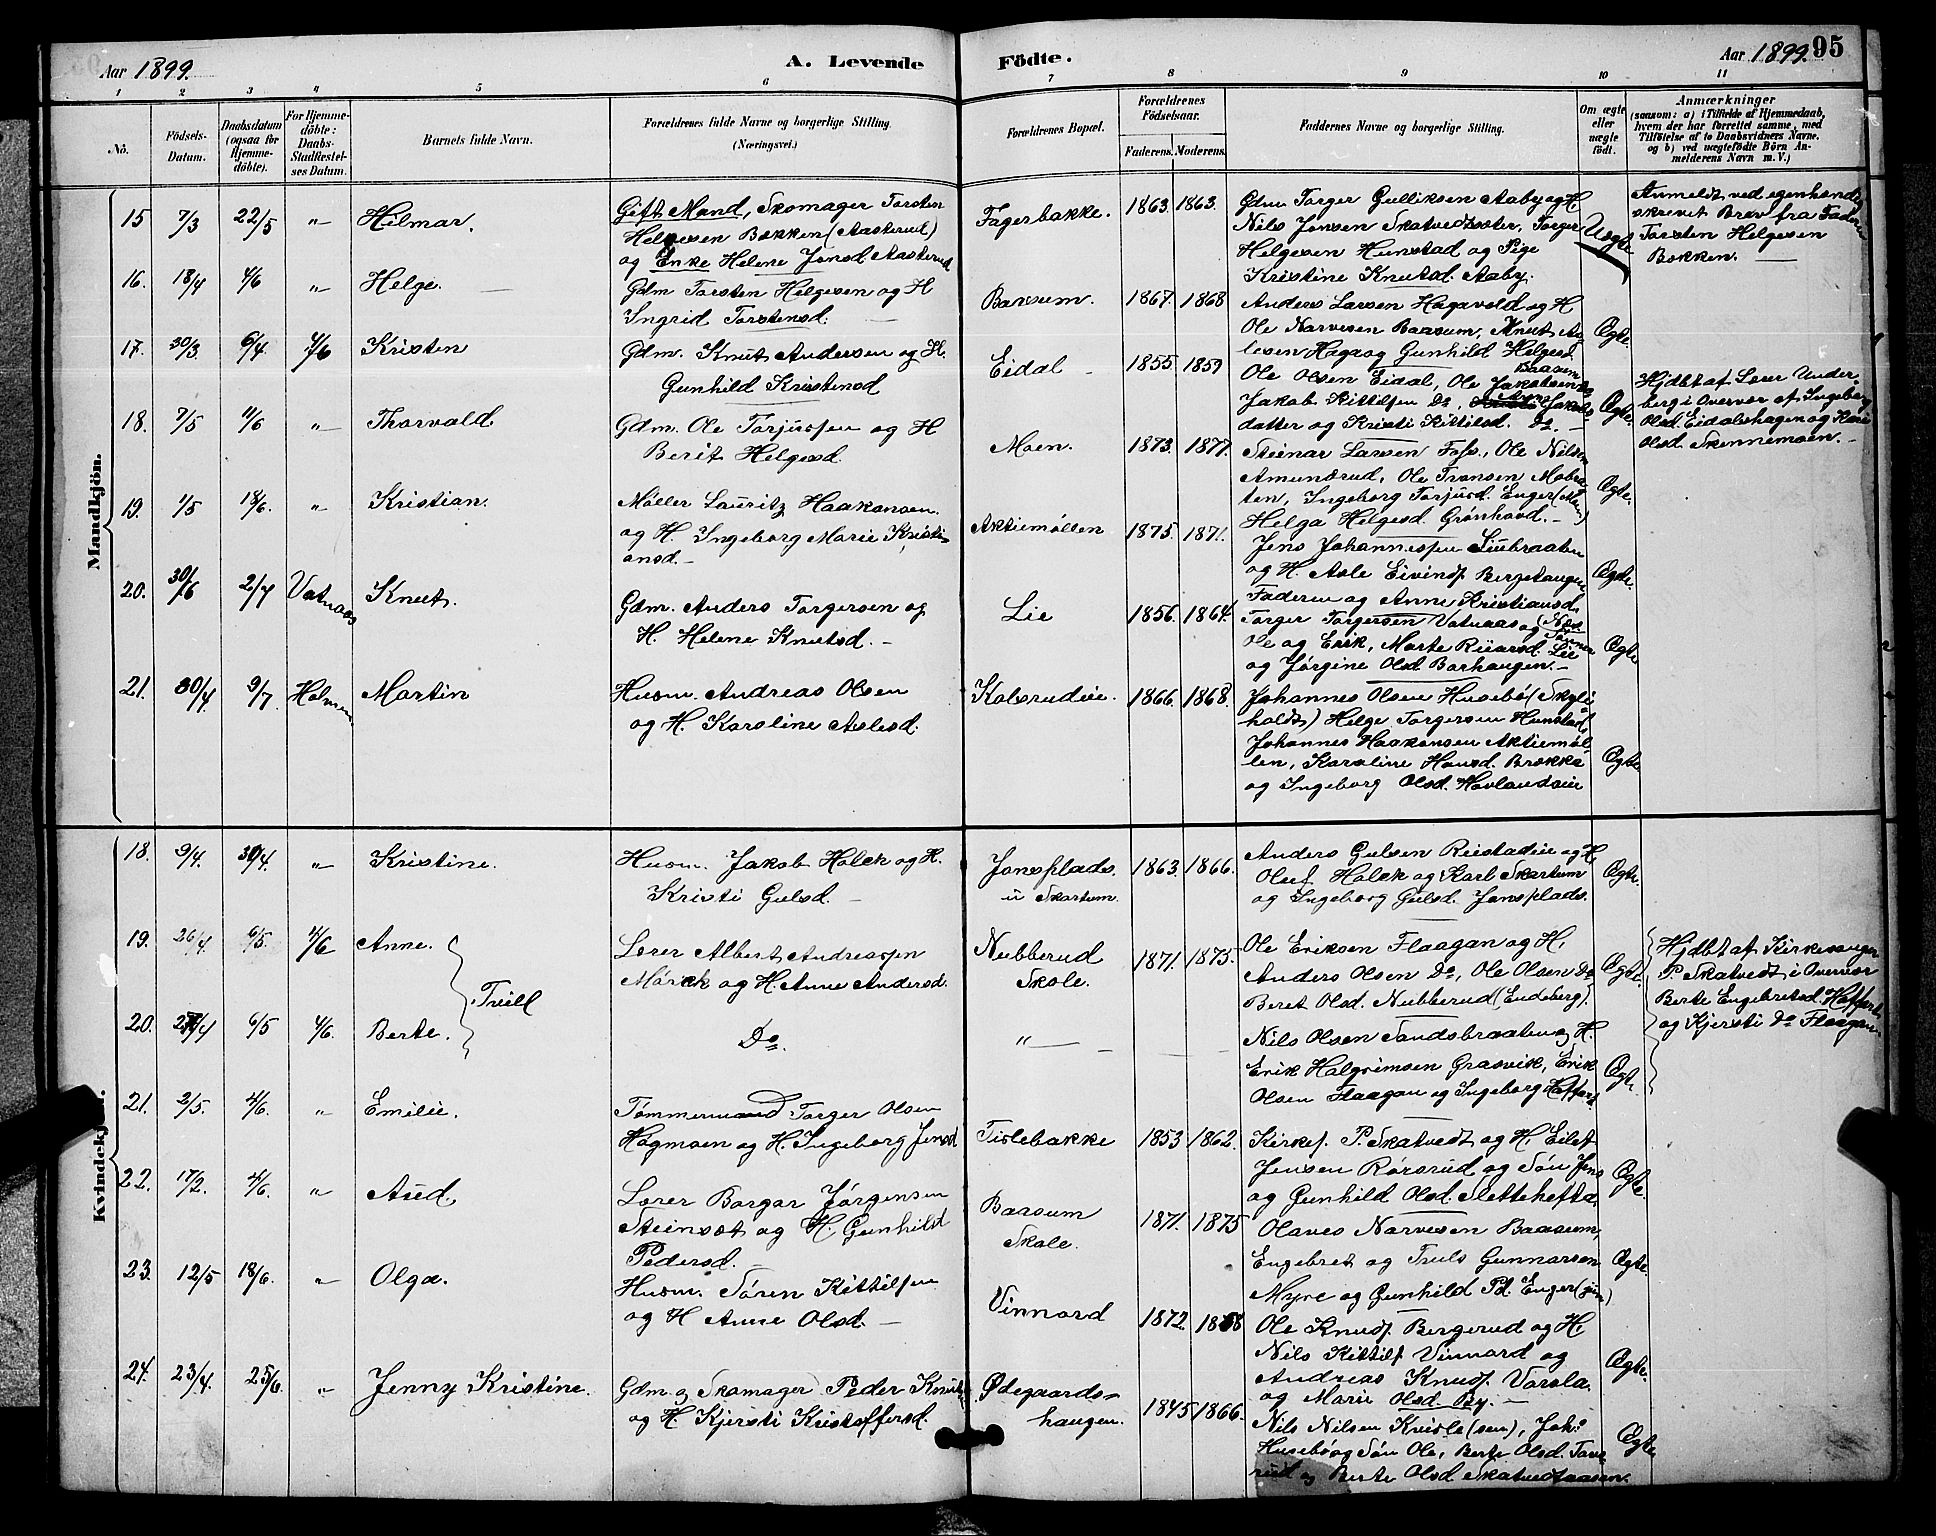 Aar 1899.
A. Levende
Födte.
Aar 1899.
95
1 2 3 4 5 6 7 8 9 10 11
No.
Födsels-Datum.
Daabsdatum (ogsaa for Hjemmedöbte).
For Hjemmedöbte: Daabs-Stadfestelses Datum.
Barnets fulde Navn.
Forældrenes fulde Navne og borgerlige Stilling.
(Næringsvei.)
Forældrenes Bopæl.
Forældrenes Födselsaar.
Faderens. Moderens.
Faddernes Navne og borgerlige Stilling.
Om ægte eller uægte födt.
Anmærkninger
(saasom: a) i Tilfælde af Hjemmedaab, hvem der har forrettet samme, med Tilföielse af to Daabsvidners Navne. og b) ved uægtefödte Börn Anmelderens Navn m. V.)
Mandkjön.
15 7/3 22/5 " Hilmar.
Gift Mand, Skomager Torsten
Helgesen Bakken (Aasterud)
og Enke Helene Jensd Aasterud
Fagerbakke. 1863 1863.
Gdm Torger Gulliksen Aaby og H.
Nils Jensen Skatvedtseter, Torger
Helgesen Hunstad og Pige
Kristine Knutsd. Aaby.
Uægte
Anmeldt ved egenhændig
skrevet Brev fra Faderen
Torsten Helgesen
Bakken. —
16. 18/4 4/6 " Helge.
Gdm Torsten Helgesen og H
Ingrid Torstensd.
Baasum. 1867. 1868
Anders Larsen Hagavold og H
Ole Narvesen Baasum, Knut As
lesen Haga og Gunhild Helgesd
Baasum
Ægte.
17. 30/3 6/4. 4/6 Kristen
Gdm. Knut Andersen og H.
Gunhild Kristensd
Eidal 1855. 1859
Ole Olsen Eidal, Ole Jakobsen Do
Jakob Kittilsen Do, Jakobs
datter og Kristi Kittilsd. Do. —
Ægte.
Hjdbt af Lærer Under-
berg i Overvær af Ingeborg
Olsd. Eidalshagen og Kari
Olsd. Skennemoen. —
18. 7/5 11/6 " Thorvald
Gdm. Ole Torjussen og H
Berit Helgesd.
Moen. 1873. 1877.
Steinar Larsen Foss, Ole Nilsen
Amundrud, Ole Transen Mobra-
ten, Ingeborg Torjusd. Enger (Moen)
Helga Helgesd. Grönhovd. —
Ægte.
19. 1/5 18/6. " Kristian.
Møller Lauritz Haakonsen
og H. Ingeborg Marie Kristi-
ansd. —
Aktiemøllen 1875. 1871.
Jens Johannessen Liubraaten
og H. Asle Eivinds. Bergehaugen
Faderen og Anne Kristiansd.
Ægte.
20. 30/6 2/7 Vatnaas Knut.
Gdm. Anders Torgersen og
H. Helene Knutsd. —
Lie 1856. 1864.
Torger Torgersen Vatnaas og
Sönner
Ole og Erik, Marte Reiarsd. Lie
og Jørgine Olsd Barhaugen. —
Ægte
21. 30/4 9/7. Holmen Martin
Husm. Andreas Olsen
og H. Karoline Aslesd.
Kolsrudeie. 1866. 1868.
Johannes Olsen Husebö (Skyli-
holdt) Helge Torgersen Hunstad,
Johannes Haakonsen Aktiemøl-
len, Karoline Hansd. Brekke
og Ingeborg Olsd. Hovlandseie
Ægte
Kvindekjön.
18. 9/4. 30/4 " Kristine.
Husm. Jakob Holek og H.
Kristi Gulsd. —
Jonsplads
u Skartum.
1863. 1866.
Anders Gulsen Reistadeie og H,
Oluf Holek og Karl Skartum
og Ingeborg Gulsd. Jonsplads.
Ægte.
19. 26/4 6/5. 4/6 Anne.
Tvill
Lærer Albert Andreassen
Mørck og H. Anne Andersd.
Nubberud
Skole.
1871. 1875.
Ole Eriksen Flaagan og H,
Anders Olsen Do, Ole Olsen Do
Beret Olsd. Nubberud (Endeberg).
Ægte.
Hjdbt af Kirkesanger
P. Skatvedt i Overvær
Berte Engebretsd. Haffert
og Kjersti Do Flaagan
20. 27/4 6/5 4/6 Berte.
Do.
" —
Nils Olsen Sandsbraaten og H.
Erik Halgrimsen Grasvik, Erik
Olsen Flaagan og Ingeborg Haffert.
Ægt.
21. 2/5. 4/6. " Emilie.
Tømmermand Torger Olsen
Hagmoen og H. Ingeborg Jensd
Tislebakke 1853 1862.
Kirkes. P. Skatvedt og H, Eilef
Jensen Rørsrud og Sön Jens
og Gunhild Olsd. Slettehefta.
Ægte.
22. 17/2. 4/6. " Aud.
Lærer Borgar Jørgensen
Steinset og H. Gunhild
Pedersd.
Baasum
Skole.
1871. 1875
Olaves Narvesen Baasum,
Engebret og Truls Gunnarsen
Myre og Gunhild Pd. Enger (jun)
Ægte.
23. 12/5 18/6. " Olga.
Husm. Sören Kittilsen
og H Anne Olsd. —
Vinnord 1872. 1868
Ole Knuds. Bergerud og H,
Nils Kittils Vinnord og
Andreas Knuds. Varsla.
og Marie Olsd. By. —
Ægte.
24. 23/4. 25/6. " Jenny Kristine.
Gdm og Skomager Peder Knuts.
og H. Kjersti Kristoffersd.
Ødegaards-
haugen.
1845 1866.
Nils Nilsen Kvisle (sen), Joh:
Husebö og Sön Ole, Berte Olsd. Tove
rud og Berte Olsd Skatvedtaasen.
Ægte